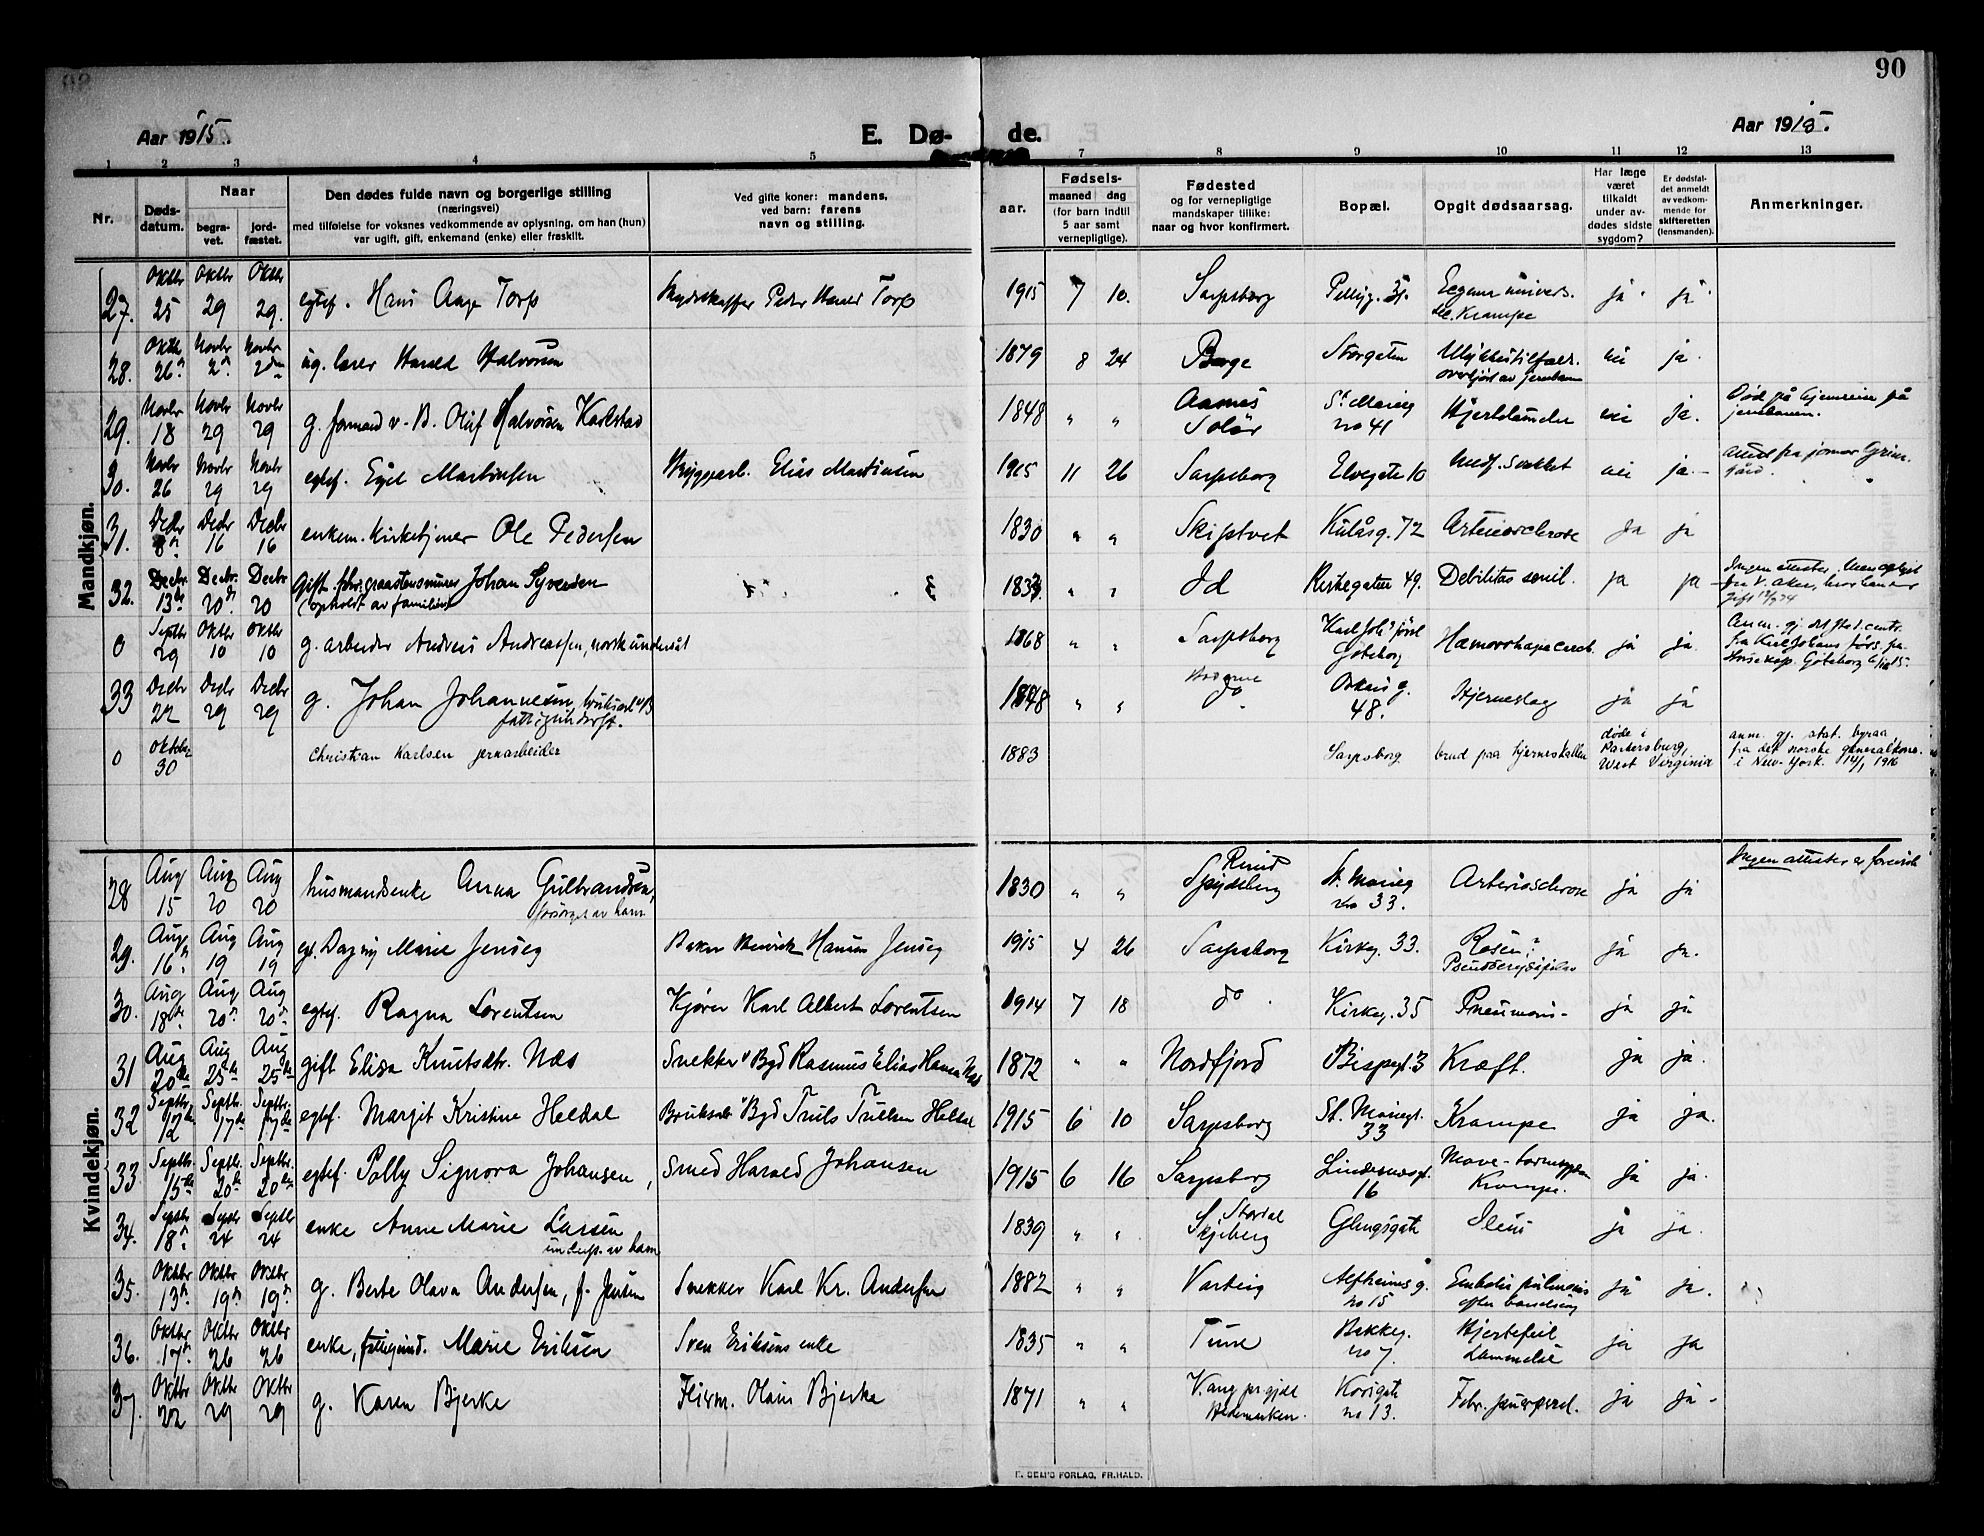 90
Aar 1915.
E. Dø-
de.
Aar 1915.
1 2 3 4 5 7 8 9 10 11 12 13
Nr.
Døds-
datum.
Naar
begra-
vet.
jord-
fæstet.
Den dødes fulde navn og borgerlige stilling
(næringsvei)
med tilføielse for voksnes vedkommende av oplysning, om han (hun)
var ugift, gift, enkemand (enke) eller fraskilt.
Ved gifte koner: mandens,
ved barn: farens
navn og stilling.
Fødsels-
aar.
maaned dag
(for barn indtil
5 aar samt
vernepligtige).
Fødested
og for vernepligtige
mandskaper tillike:
naar og hvor konfirmert.
Bopæl.
Opgit dødsaarsag.
Har læge
været
tilkaldt
under av-
dødes sidste
sygdom?
Er dødsfal-
det anmeldt
av vedkom-
mende for
skifteretten
(lensmanden).
Anmerkninger.
Mandkjøn.
27. Oktbr 25 Oktbr 29 Oktbr 29. egtef. Hans Aage Torp Peder Torp 1915 7 10. Sarpsborg Pellyg. Eczema univers. Krampe ja ja
28. Oktbr 26 Novbr 2 Novbr 2 ug. Harald Halvorsen 1879 8 24 Borge Storgaten Ulykkestilfælde overkjørt av jernbane nei ja
29. Novbr 18 Novbr 29 Novbr 29 g. formand v. B. Oluf Halvorsen Karlstad 1848 " " Aasnes Solør St. Marieg no 41 nei ja. Død på hjemreise på jernbanen.
30. Novbr 26 Novbr 29 Novbr 29 egtef. Egil Martinsen Elias Martinsen 1915 11 26 Sarpsborg Elvegata 10 Medf. svakhet nei ja
31. Decbr 8 Decbr 16 Decbr 16 enkem. Kirketjener Ole Pedersen 1830 " " Skiptvet Kulåsg. 72 Arteriosclerose ja ja
32. Decbr 13de Decbr. 20de Decbr 20 Gift. fhv. graastensmurer Johan Syversen opholdt av familien 1833 " " Id Kirkegaten 49. Debilitas senil. ja ja
0 Septbr 29 Oktbr 10 Oktbr 10 g. arbeider Andreas Andreassen, norsk undersåt 1868 " " Sarpsborg Karl Joh's förs. Göteborg Hæmorrhagia cereb. ja ja. Anm. gj. det stat. centr. fra Karl Johans förs. Göteborg
33 Decbr 22 Decbr 29 Decbr 29 g. Johan Johannesen, fattigunderst. 1848 " " do Oskars g. 48. Hjerneslag ja ja
0 Oktober 30 Christian Karlsen jernarbeider 1883 Sarpsborg brud paa hjerneskallen døde i Parkersburg, West Virginia anm. gj. stat. byraa fra det norske generalkons. i New-York. 14/1 1916
Kvindekjøn.
28 Aug 15 Aug 20 Aug 20 husmandsenke Anna Gulbrandsen, forsørget av barn 1830 " " Spydeberg St. Marieg no 33. Arteriosclerose ja ja Ingen attester er forevist
29. Aug 16 Aug 19 Aug 19 eg. Dagny Marie Jenseg Baker Henrik Hansen Jenseg 1915 4 26 Sarpsborg Kirkeg. 33. Rosen? ja ja.
30. Aug 18de Aug 20 Aug 20 egtef. Ragna Lorentsen Kjører Karl Albert Lorentsen 1914 7 18 do Kirkeg. 35 Pneumoni ja ja
31 Aug 20de Aug 25de Aug 25de gift Elisa Knutsdtr. Næs Snekker v Byd Rasmus Elias Hansen Næs 1872 " " Nordfjord Bispegt. 3 Kræft. ja ja.
32 Septbr. 12te Septbr. 17de Septbr. 17de egtef. Margit Kristine Heldal Bruksarb v Byd Truls Trulsen Heldal 1915 6 10 Sarpsborg St. Mariegt. 33 Krampe ja ja.
33 Septbr. 15de Septbr. 20de Septbr. 20de egtef. Polly Signora Johansen, Smed Harald Johansen 1915 6 16 Sarpsborg Lindemansgt. 16 Mave-tarmsygdom Krampe. ja ja.
34. Septbr 18 Septbr 24 Septbr 24 enke Anne Marie Larsen underst. av barn 1839 " " Skjeberg Glengsgata Ileus ja ja.
35. Oktbr 13 Oktbr 19 Oktbr 19 g. Berte Olava Andersen, f. Jensen Snekker Karl Kr. Andersen 1882 " " Varteig Alfheimsg. no 15 Embolia pulmonis efter barnsseng ja ja.
36. Oktbr 17 Oktbr 26 Oktbr 26 enke, fattigund. Marie Eriksen Sven Eriksens enke 1835 " " Tune Bakkeg. no 7. Hjertefeil Lammelse ja ja
37. Oktbr 22 Oktbr 29 Oktbr 29 g. Karen Bjerke Feierm. Olaus Bjerke 1871 " " Vang prgjeld Hedemarken. Korsgata no 13. Febr. puerperal. ja ja
E. SEM'S FORLAG, FR.HALD.